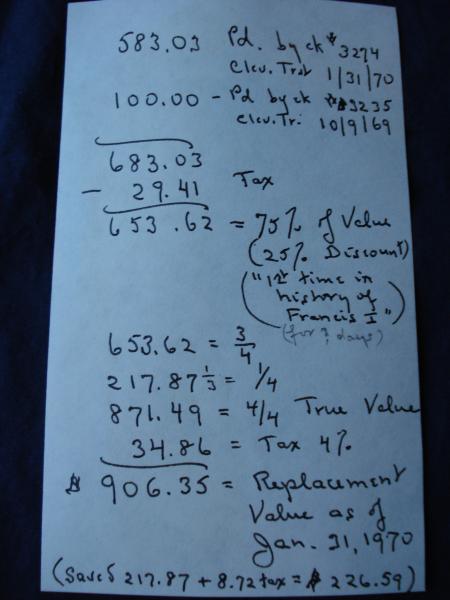 583.03 Pd. by ck # 3274
Clev. Trst 1/31/70
100.00 - Pd by ck # 3235
Clev. Tr. 10/9/69
683.03
- 29.41 Tax
653.62 = 75% of Value
(25% Discount)
("1st time in
history of
Francis I")
(for ? days)
653.62 = 3/4
217.87 1/3 = 1/4
871.49 = 4/4 True Value
34.86 = Tax 4%
$ 906.35 = Replacement
Value as of
Jan. 31, 1970
(Saves 217.87 + 8.72 tax = $ 226.59)